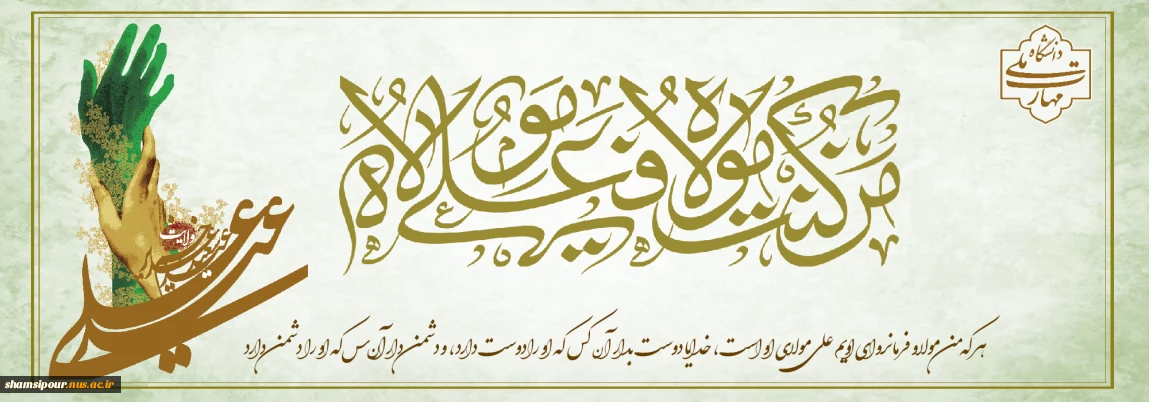 دانشگاه
ملی
مهارت
من كنت مولاه فعلي مولاه
علی
عید
هرکه من مولا و فرمانروای اویم علی مولای او است، خدایا دوست بدار آن کس که او را دوست دارد، و دشمن دار آن کس که او را دشمن دارد
shamsipour.nus.ac.ir